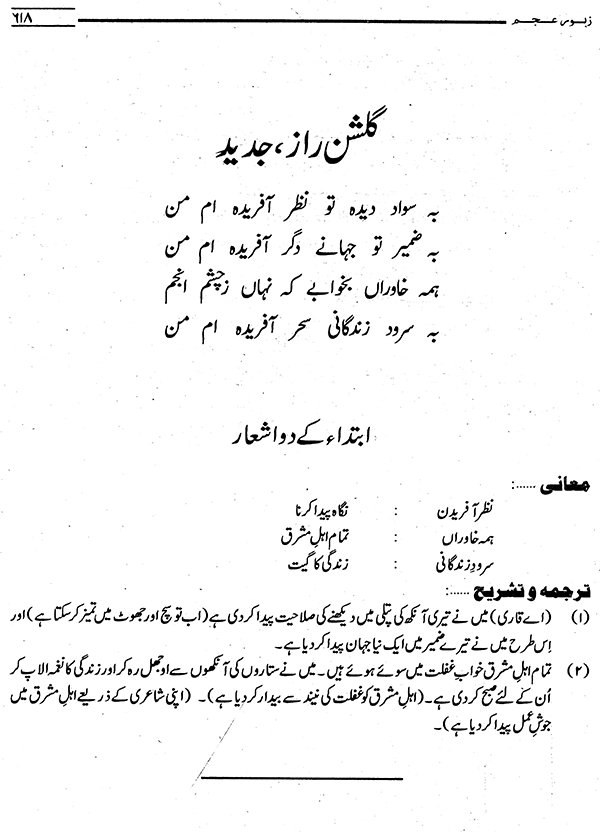 زبور عجم ۶۱۸
گلشن راز، جدید
بہ سواد دیدہ تو نظر آفریدہ ام من
بہ ضمیر تو جہانے دگر آفریدہ ام من
ہمہ خاوراں بخوابے کہ نہاں زچشم انجم
بہ سرود زندگانی سحر آفریدہ ام من
ابتداء کے دو اشعار
معانی ......:
نظر آفریدن : نگاہ پیدا کرنا
ہمہ خاوراں : تمام اہلِ مشرق
سرودِ زندگانی : زندگی کا گیت
ترجمہ و تشریح ......:
(۱) (اے قاری) میں نے تیری آنکھ کی پتلی میں دیکھنے کی صلاحیت پیدا کر دی ہے (اب تو سچ اور جھوٹ میں تمیز کر سکتا ہے) اور
اِس طرح میں نے تیرے ضمیر میں ایک نیا جہان پیدا کر دیا ہے۔
(۲) تمام اہلِ مشرق خوابِ غفلت میں سوئے ہوئے ہیں۔ میں نے ستاروں کی آنکھوں سے اوجھل رہ کر اور زندگی کا نغمہ الاپ کر
اُن کے لئے صبح کر دی ہے۔ (اہلِ مشرق کو غفلت کی نیند سے بیدار کر دیا ہے)۔ (اپنی شاعری کے ذریعے اہلِ مشرق میں
جوشِ عمل پیدا کر دیا ہے)۔